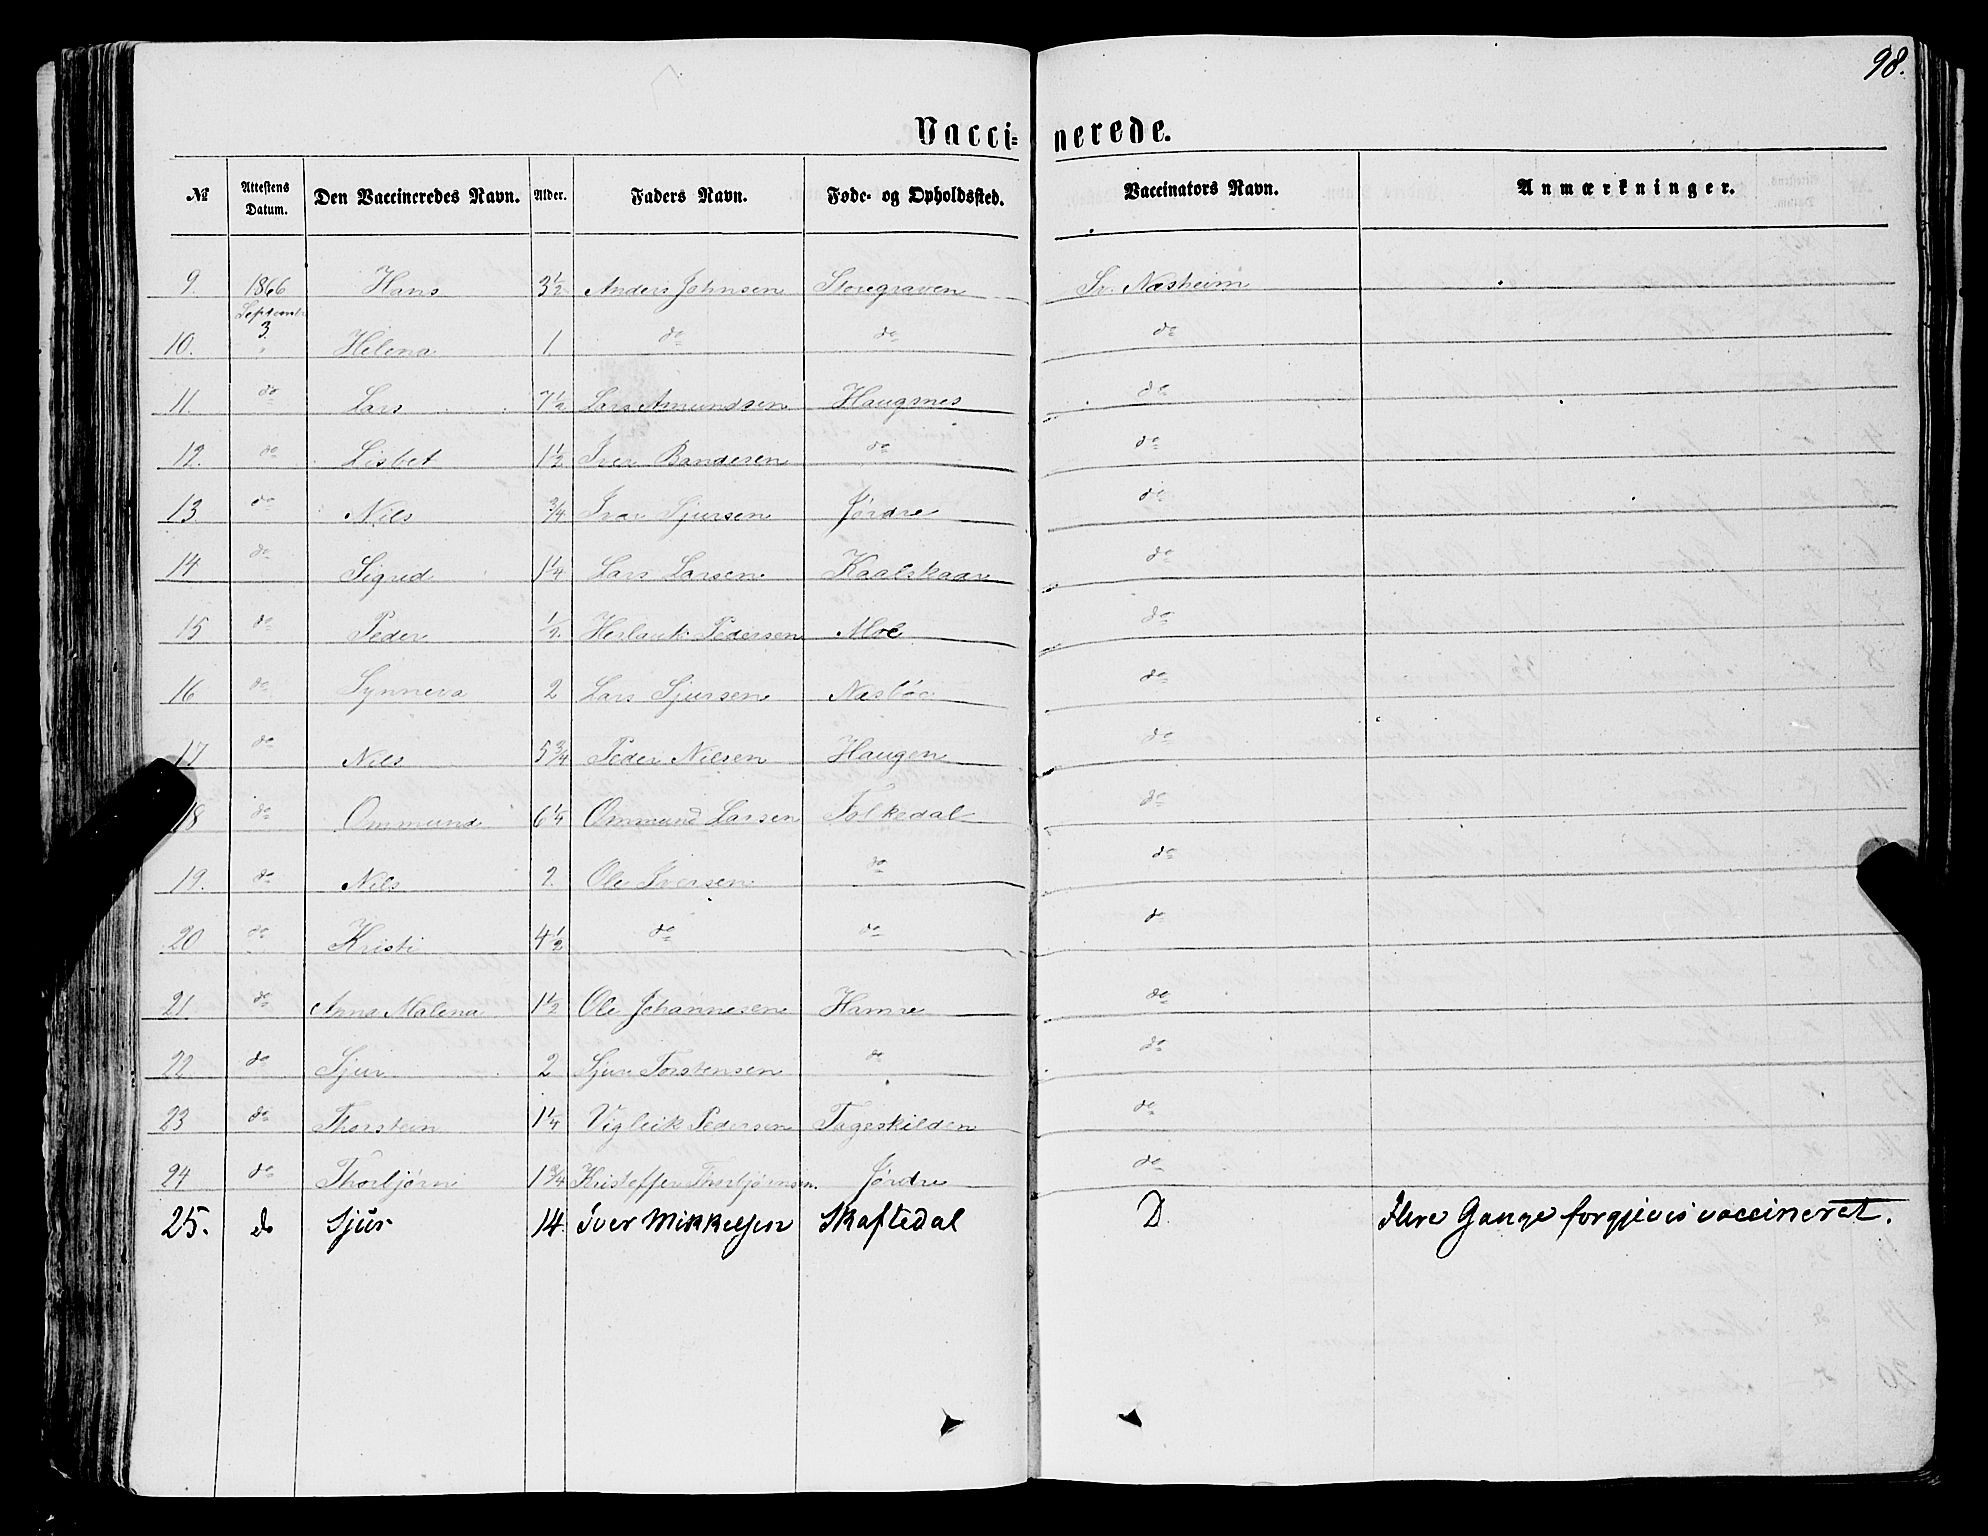 98.
Vaccinerede.
No Attestens Datum. Den Vaccineredes Navn. Alder. Faders Navn. Føde- og Opholdssted. Vaccinators Navn. Anmærkninger.
9. 1866 Septemb 3. Hans 3 1/2 Anders Johnsen Storegraven Sv. Næsheim
10. " Helena 1 do do do
11. do Lars 7 1/2 Lars Amundsen Haugsnes do
12. do Lisbet 1 1/2 Iver do do
13. do Nils 3/4 Ivar Sjursen Jørdre do
14 do Sigrid 1 1/4 Lars Larsen Kaalskaar do
15 do Peder 1/2 Herlauk Pedersen Moe do
16 do Synneva 2 Lars Sjursen Næsbøe do
17 do Nils 5 3/4 Peder Nilsen Haugen do
18 do Ommund 6 1/4 Ommund Larsen Folkedal do
19. do Nils 2. Ole Iversen do do
20 do Kristi 4 1/2 do do do
21 do Anna Malena 1 1/2 Ole Johannesen Hamre do
22 do Sjur 2 Sjur Torstensen do do
23 do Thorstein 1 1/4 Vigleik Pedersen do
24 do Thorbjørn 1 3/4 Kristoffer Thorbjørnsen Jørdre do
25. do Sjur 14. Iver Mikkelsen Skaftedal D. flere Gange forgjeves vaccineret.